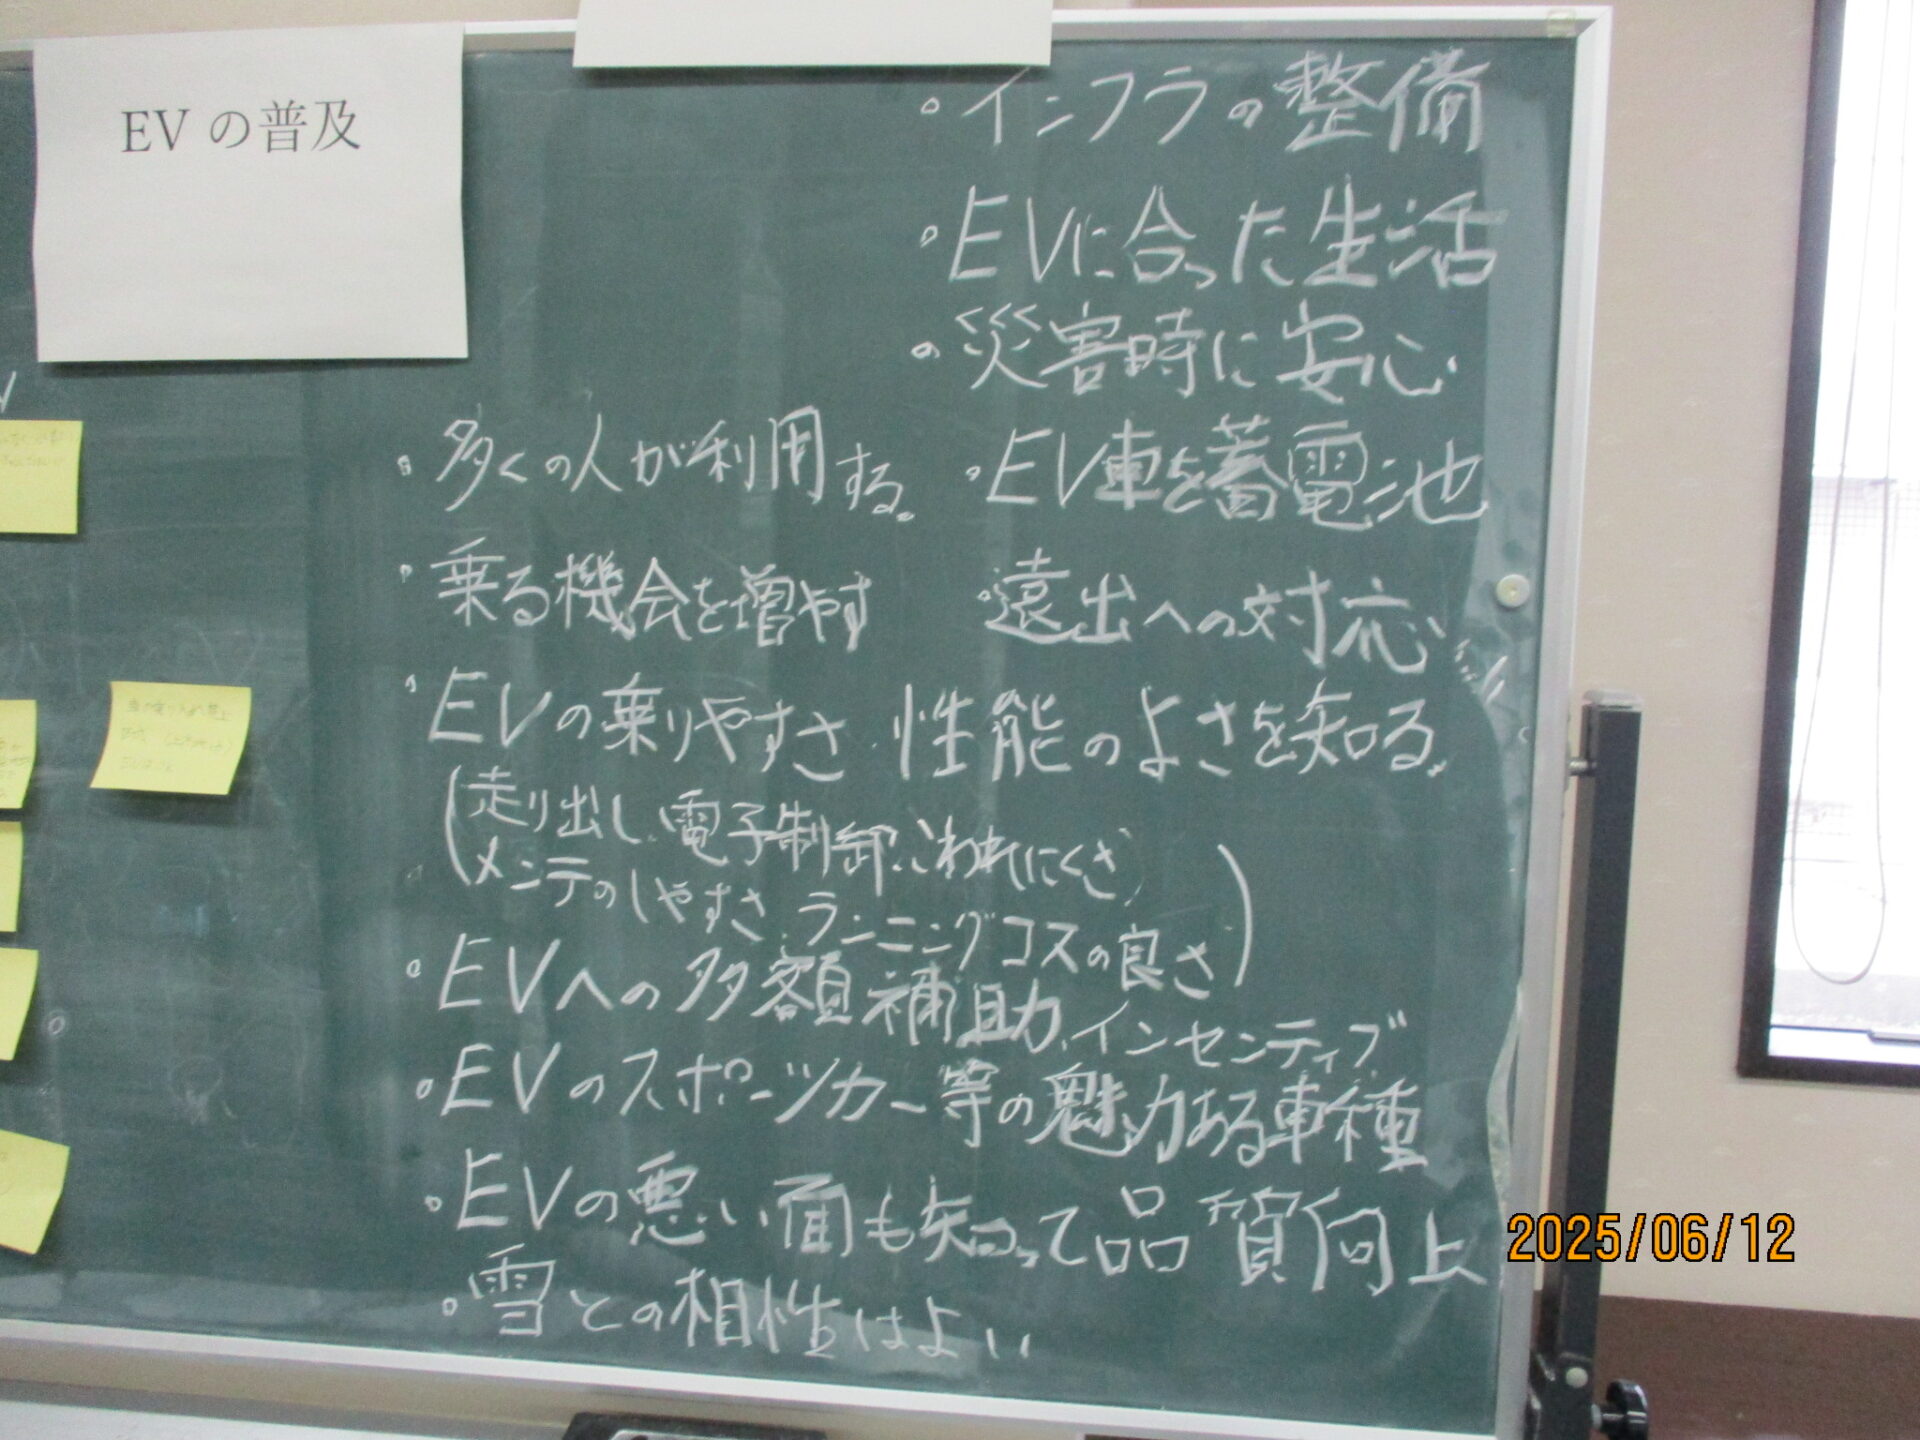 EVの普及
・インフラの整備
・EVに合った生活
・災害時に安心
・多くの人が利用する。
・EV車を蓄電池
・乗る機会を増やす
・遠出への対応
・EVの乗りやすさ、性能のよさを知る。
(走り出し、電子制御、こわれにくさ
メンテのしやすさ、ランニングコスの良さ)
・EVへの多額補助、インセンティブ
・EVのスポーツカー等の魅力ある車種
・EVの悪い面も知って品質向上
・雪との相性はよい
2025/06/12